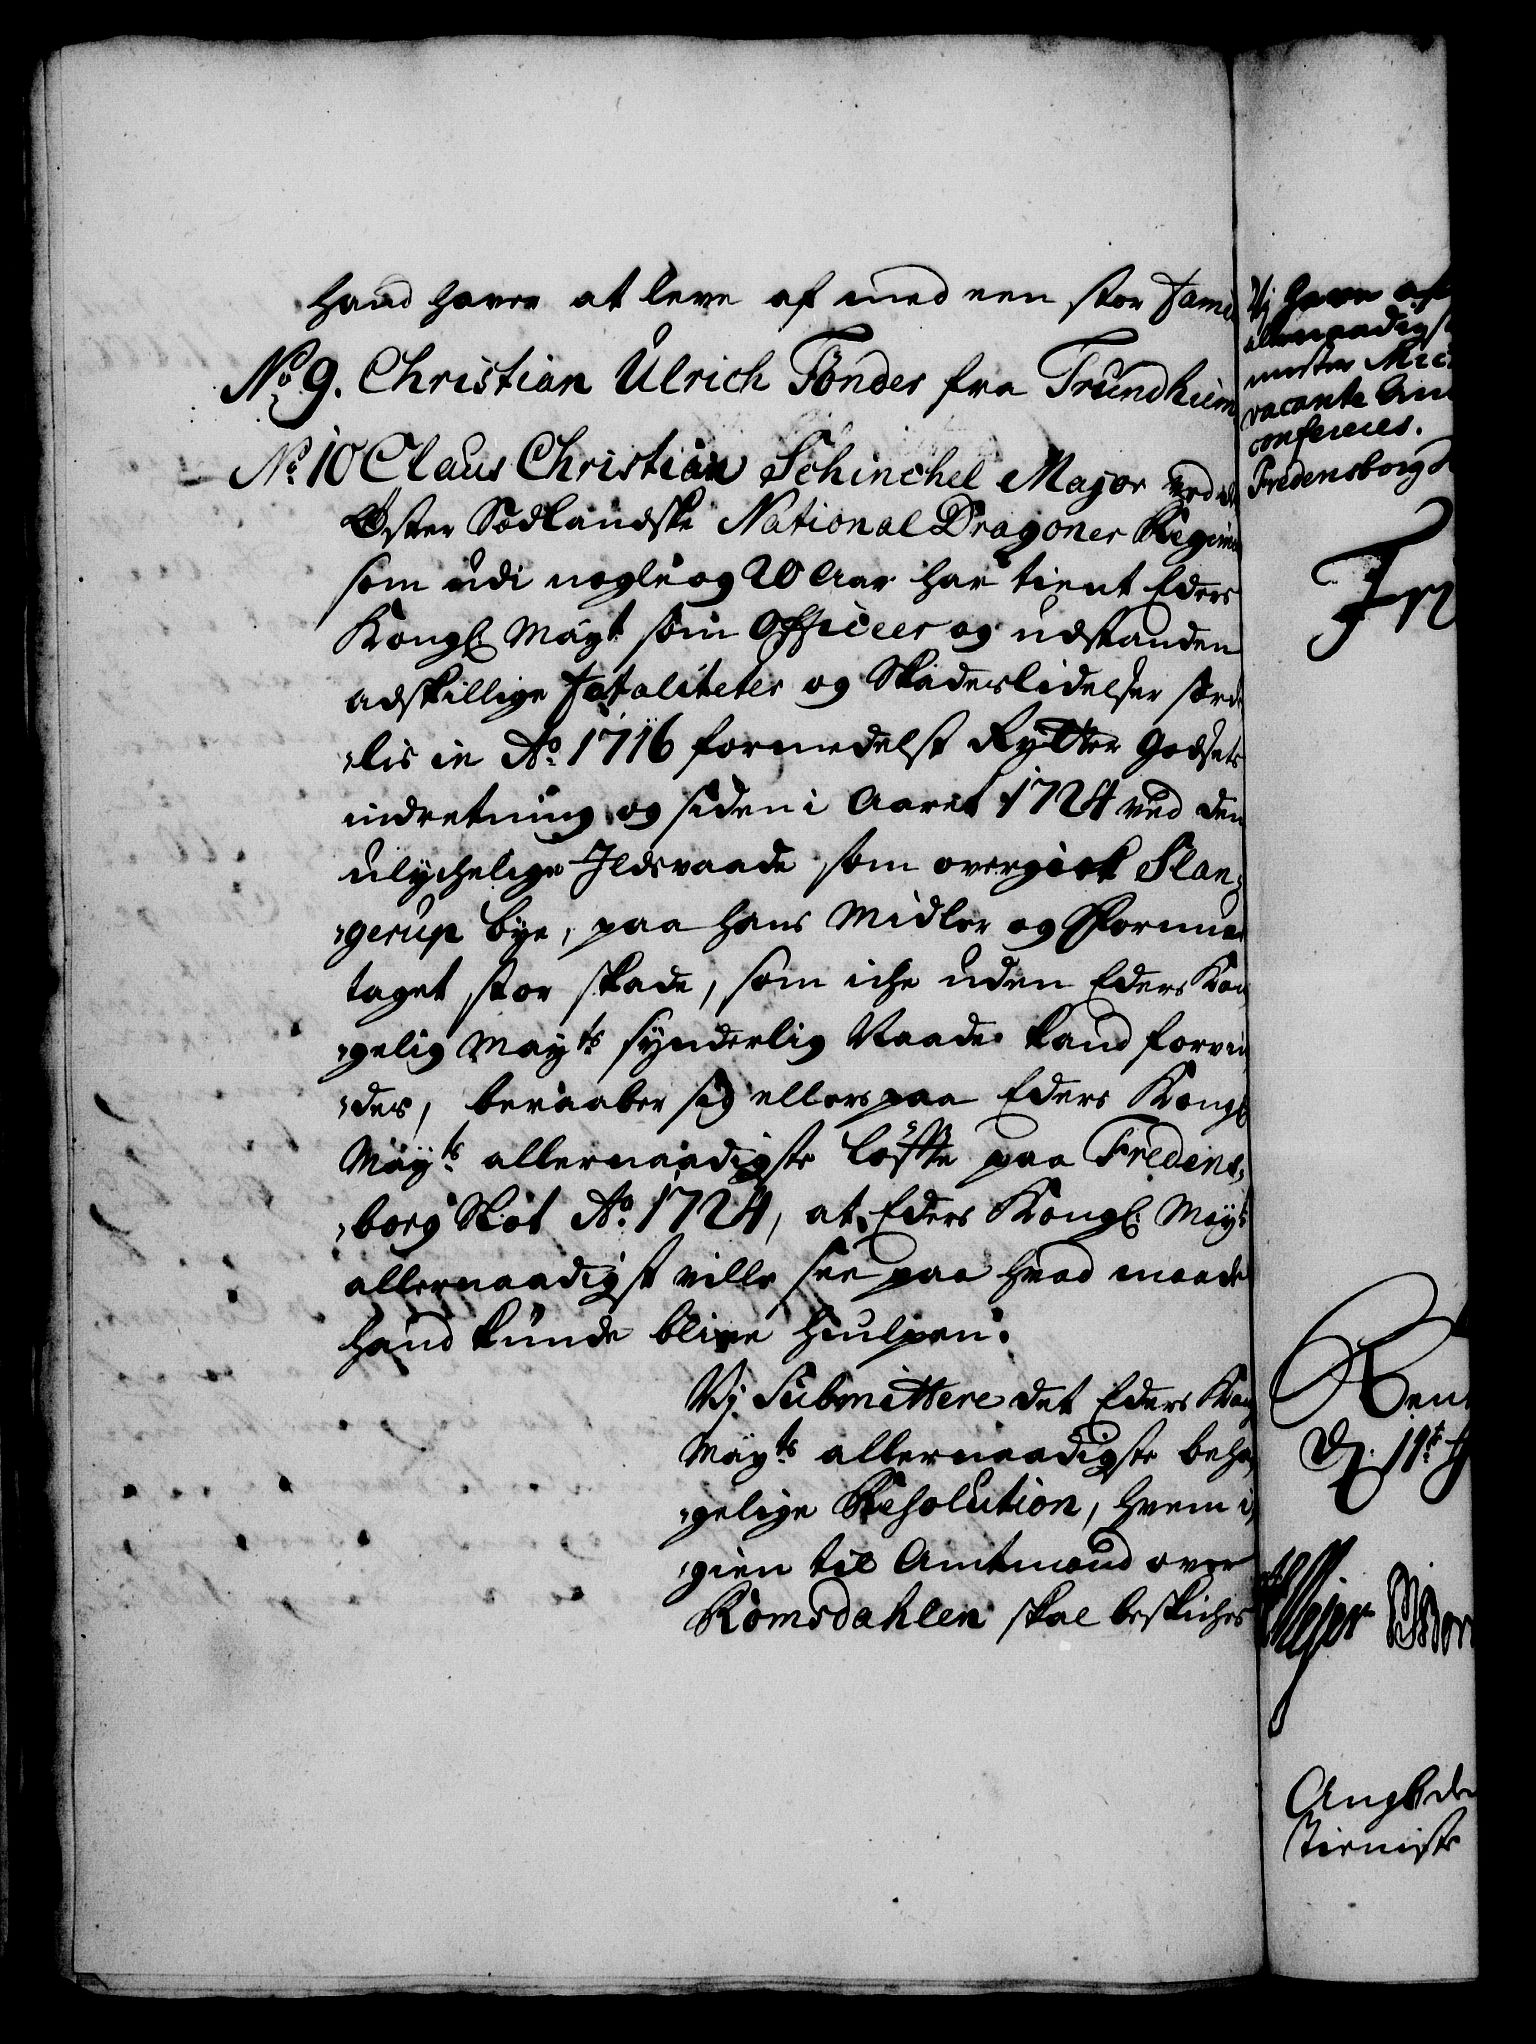 hand haver at leve af med een stor Fami
No 9. Christian Ulrich Tönder fra Trundhiem
No 10 Claus Christian Schinchel Major ved det
Øster Sædlandske National Dragoner Regim
som udi nogle og 20 Aar har tient Eders
Kongl Mayt: som Officeer og udstanden
adskillige fataliteter og Skadeslidelser sær
-lis in Ao. 1716 formedelst Rytter Godsets
indretning og siden i Aaret 1724 ved den
ulychelige Ildsvaade som overgick Slan-
-gerup bye, paa hans Midler og Formue
taget stor skade, som iche uden Eders Kon
-gelig Mayts synderlig Naade kand forvin
-des, beraaber sig ellers paa Eders Kongl
Mayts allernaadigste løffte paa Fredens-
-borg Slot Ao. 1724, at Eders Kongl: Mayt
allernaadigst ville see paa hvad maade
hand kunde blive hiulpen.
Vj Submittere det Eders Kong
Mayts allernaadigste beha
-gelige Resolution, hvem i
-gien til Amtmand over
Romsdahlen skal beskiches
Vj have
allernaadigst
vacante Am
confereres.
Fredensborg
Fr
Rent
D. 11t